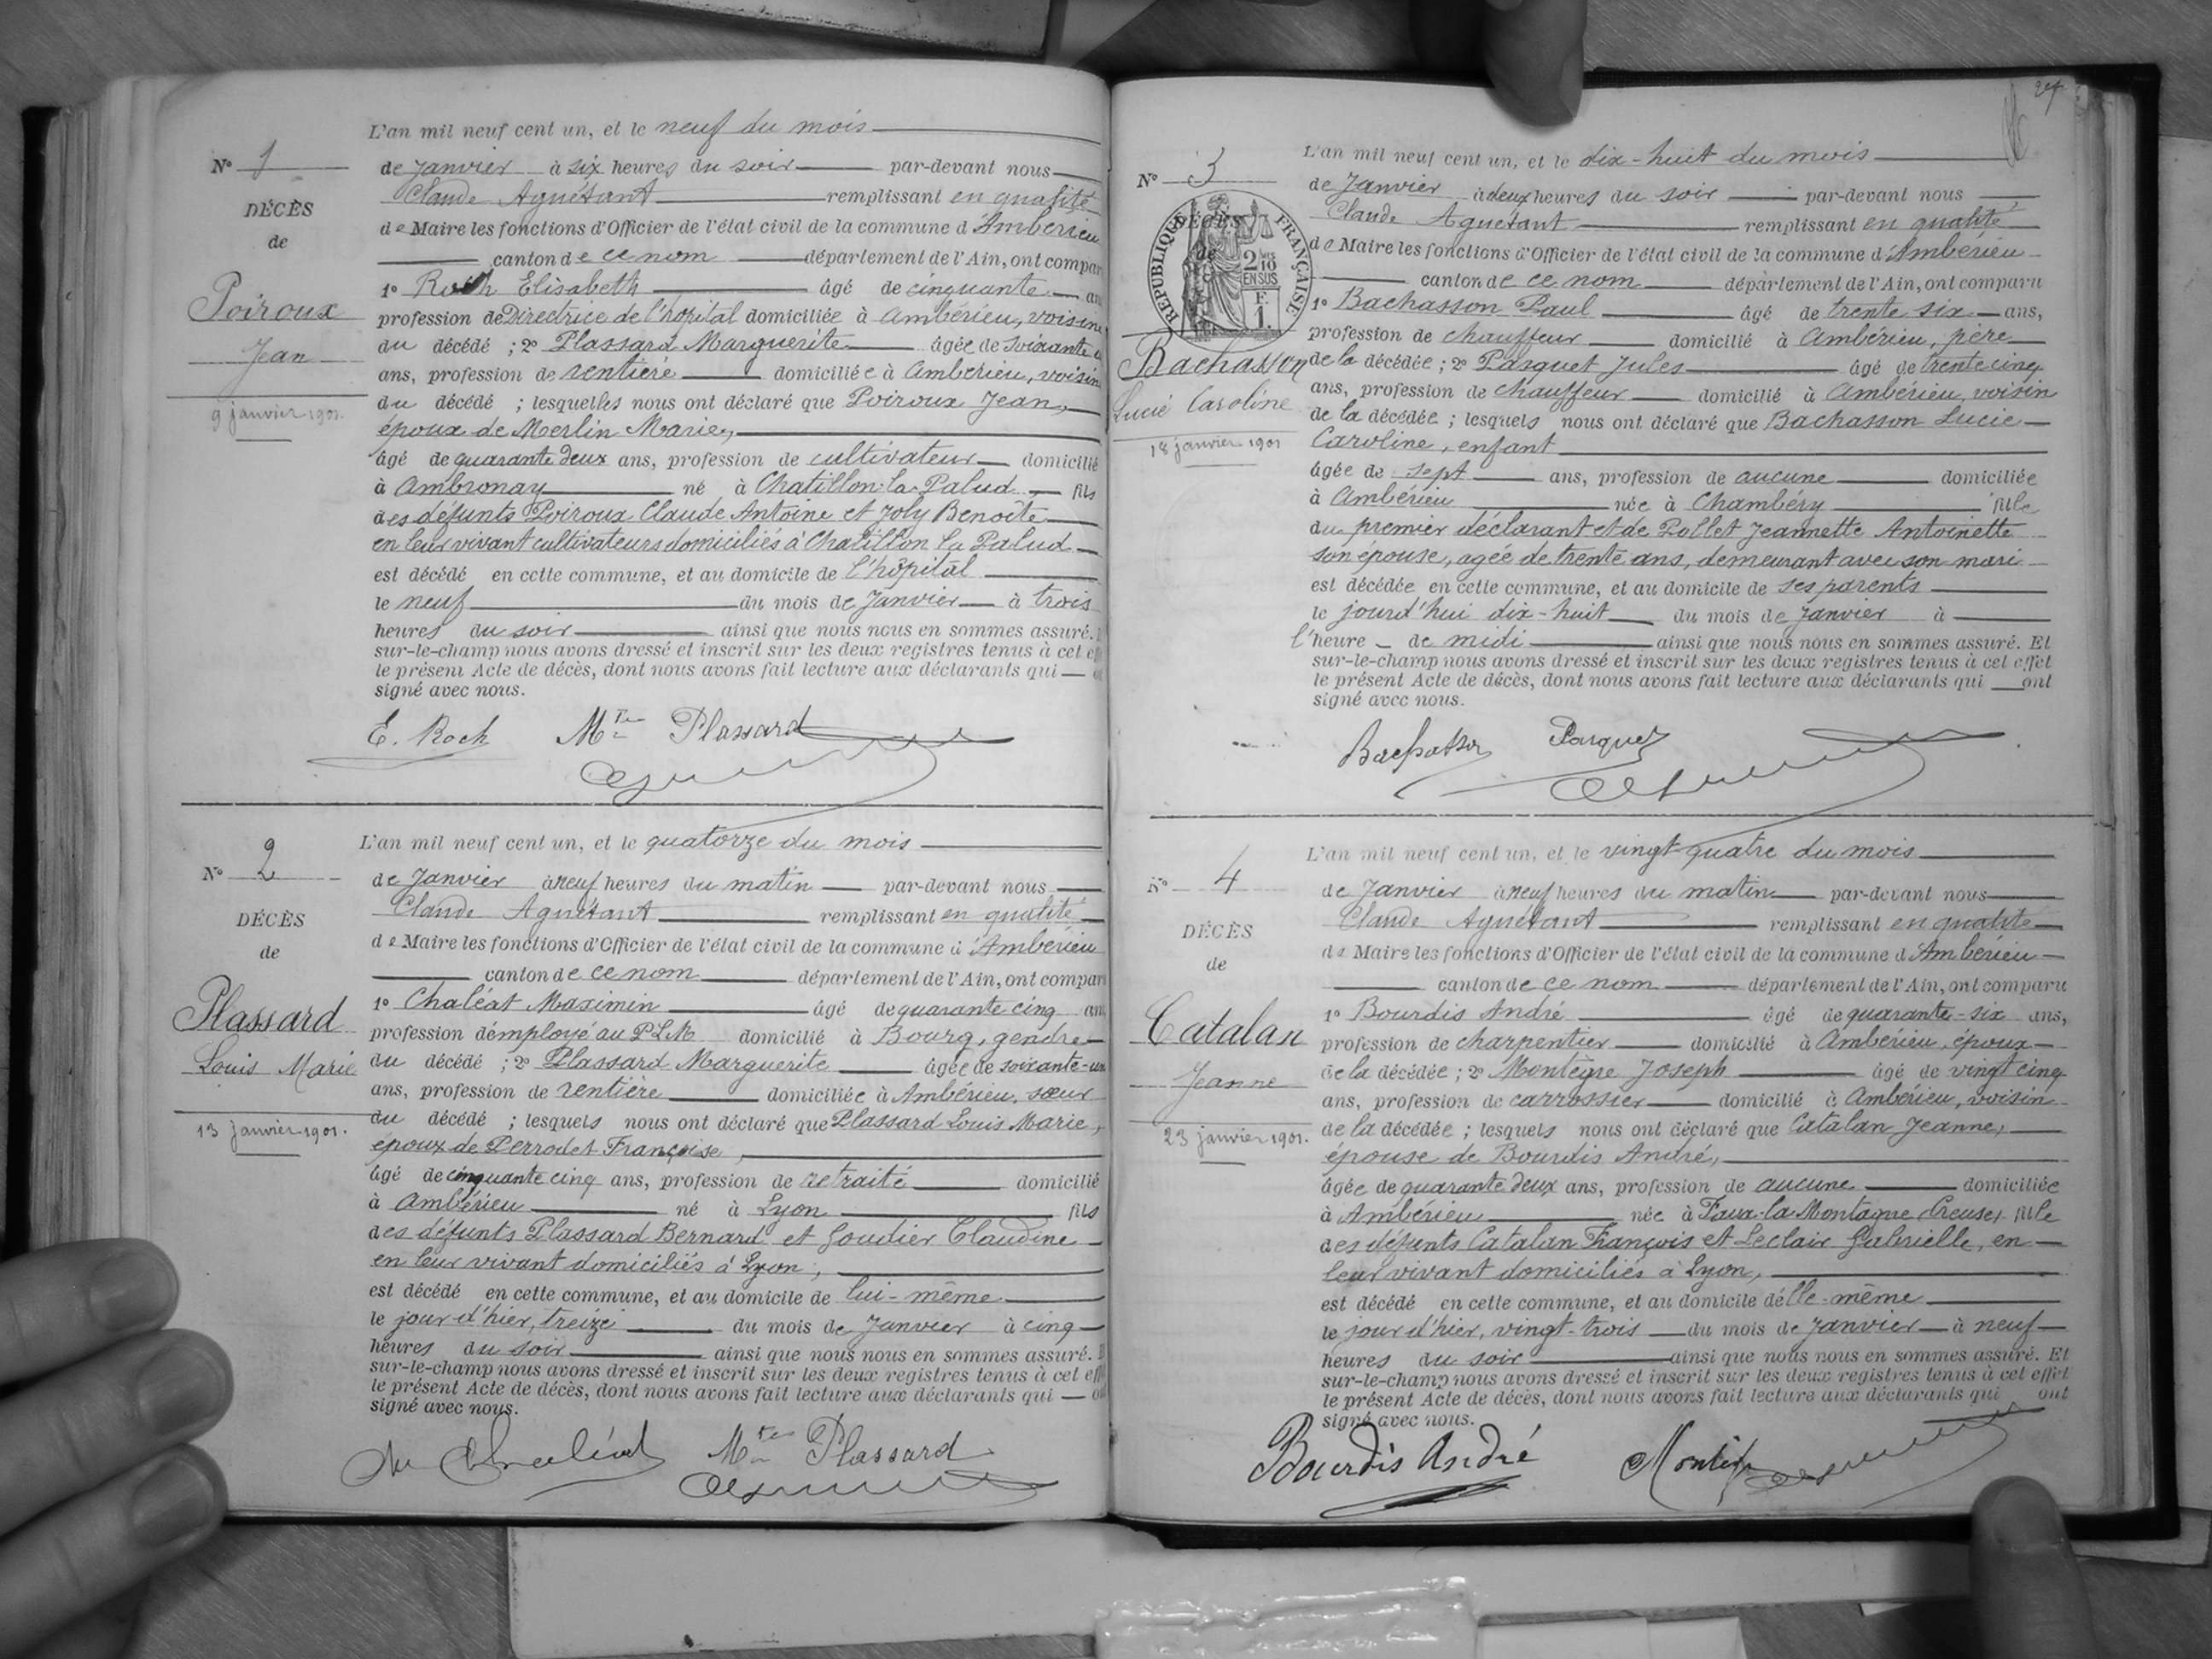 L'an mil neuf cent un, et le neuf du mois
N° 1
de Janvier à six heures du soir par-devant nous
Claude Aguétant remplissant en qualité
DÉCÈS
de Maire les fonctions d'Officier de l'état civil de la commune d'Ambérieu
de
canton de ce nom département de l'Ain, ont compar
1° Elisabeth âgé de cinquante an
Poiroux
profession de Directrice de l'hôpital domiciliée à Ambérieu, voisine
Jean
du décédé ; 2° Plassard Marguerite âgée de soixante
ans, profession de rentière domiciliée à Ambérieu, voisin
9 janvier 1901.
du décédé ; lesquelles nous ont déclaré que Poiroux Jean,
époux de Merlin Marie,
âgé de quarante deux ans, profession de cultivateur domicilié
à Ambronay né à Chatillon-la-Palud fils
des défunts Poiroux Claude Antoine et Joly Benoîte
en leur vivant cultivateurs domiciliés à Chatillon la Palud
est décédé en cette commune, et au domicile de l'hôpital
le neuf du mois de Janvier à trois
heures du soir ainsi que nous nous en sommes assuré.
sur-le-champ nous avons dressé et inscrit sur les deux registres tenus à cet
le présent Acte de décès, dont nous avons fait lecture aux déclarants qui
signé avec nous.
E. Roch Mte Plassard
L'an mil neuf cent un, et le quatorze du mois
N° 2
de Janvier à neuf heures du matin par-devant nous
Claude Aguétant remplissant en qualité
DÉCÈS
de Maire les fonctions d'Officier de l'état civil de la commune d'Ambérieu
de
canton de ce nom département de l'Ain, ont compar
1° Chaléat Maximin âgé de quarante cinq an
Plassard
profession d'employé au P.L.M domicilié à Bourg, gendre
Louis Marie
du décédé ; 2° Plassard Marguerite âgée de soixante-un
ans, profession de rentière domiciliée à Ambérieu, sœur
13 janvier 1901.
du décédé ; lesquels nous ont déclaré que Plassard Louis Marie,
époux de Perrodet Françoise,
âgé de cinquante cinq ans, profession de retraité domicilié
à Ambérieu né à Lyon fils
des défunts Plassard Bernard et Goudier Claudine
en leur vivant domiciliés à Lyon,
est décédé en cette commune, et au domicile de lui-même
le jour d'hier, treize du mois de Janvier à cinq
heures du soir ainsi que nous nous en sommes assuré.
sur-le-champ nous avons dressé et inscrit sur les deux registres tenus à cet
le présent Acte de décès, dont nous avons fait lecture aux déclarants qui
signé avec nous.
Chaléat Mte Plassard
L'an mil neuf cent un, et le dix-huit du mois
N° 3
de Janvier à deux heures du soir par-devant nous
Claude Aguétant remplissant en qualité
DÉCÈS
de
RÉPUBLIQUE FRANÇAISE
2/10 EN SUS
F. 1.
de Maire les fonctions d'Officier de l'état civil de la commune d'Ambérieu
canton de ce nom département de l'Ain, ont comparu
1° Bachasson Paul âgé de trente six ans,
profession de chauffeur domicilié à Ambérieu, père
Bachasson
de la décédée ; 2° Pasquet Jules âgé de trente cinq
Lucie Caroline
ans, profession de chauffeur domicilié à Ambérieu, voisin
de la décédée ; lesquels nous ont déclaré que Bachasson Lucie
18 janvier 1901
Caroline, enfant
âgée de sept ans, profession de aucune domiciliée
à Ambérieu née à Chambéry fille
du premier déclarant et de Pollet Jeannette Antoinette
son épouse, agée de trente ans, demeurant avec son mari
est décédée en cette commune, et au domicile de ses parents
le jourd'hui dix-huit du mois de Janvier à
l'heure de midi ainsi que nous nous en sommes assuré. Et
sur-le-champ nous avons dressé et inscrit sur les deux registres tenus à cet effet
le présent Acte de décès, dont nous avons fait lecture aux déclarants qui ont
signé avec nous.
Bachasson Pasquet
L'an mil neuf cent un, et le vingt-quatre du mois
N° 4
de Janvier à neuf heures du matin par-devant nous
Claude Aguétant remplissant en qualité
DÉCÈS
de Maire les fonctions d'Officier de l'état civil de la commune d'Ambérieu
de
canton de ce nom département de l'Ain, ont comparu
1° Bourdis André âgé de quarante-six ans,
Catalan
profession de charpentier domicilié à Ambérieu, époux
Jeanne
de la décédée ; 2° Montègre Joseph âgé de vingt cinq
ans, profession de carrossier domicilié à Ambérieu, voisin
23 janvier 1901.
de la décédée ; lesquels nous ont déclaré que Catalan Jeanne,
épouse de Bourdis André,
âgée de quarante deux ans, profession de aucune domiciliée
à Ambérieu née à Faux-la-Montagne Creuse, fille
des défunts Catalan François et Leclair Gabrielle, en
leur vivant domiciliés à Lyon,
est décédé en cette commune, et au domicile d'elle-même
le jour d'hier, vingt-trois du mois de Janvier à neuf
heures du soir ainsi que nous nous en sommes assuré. Et
sur-le-champ nous avons dressé et inscrit sur les deux registres tenus à cet effet
le présent Acte de décès, dont nous avons fait lecture aux déclarants qui ont
signé avec nous.
Bourdis André